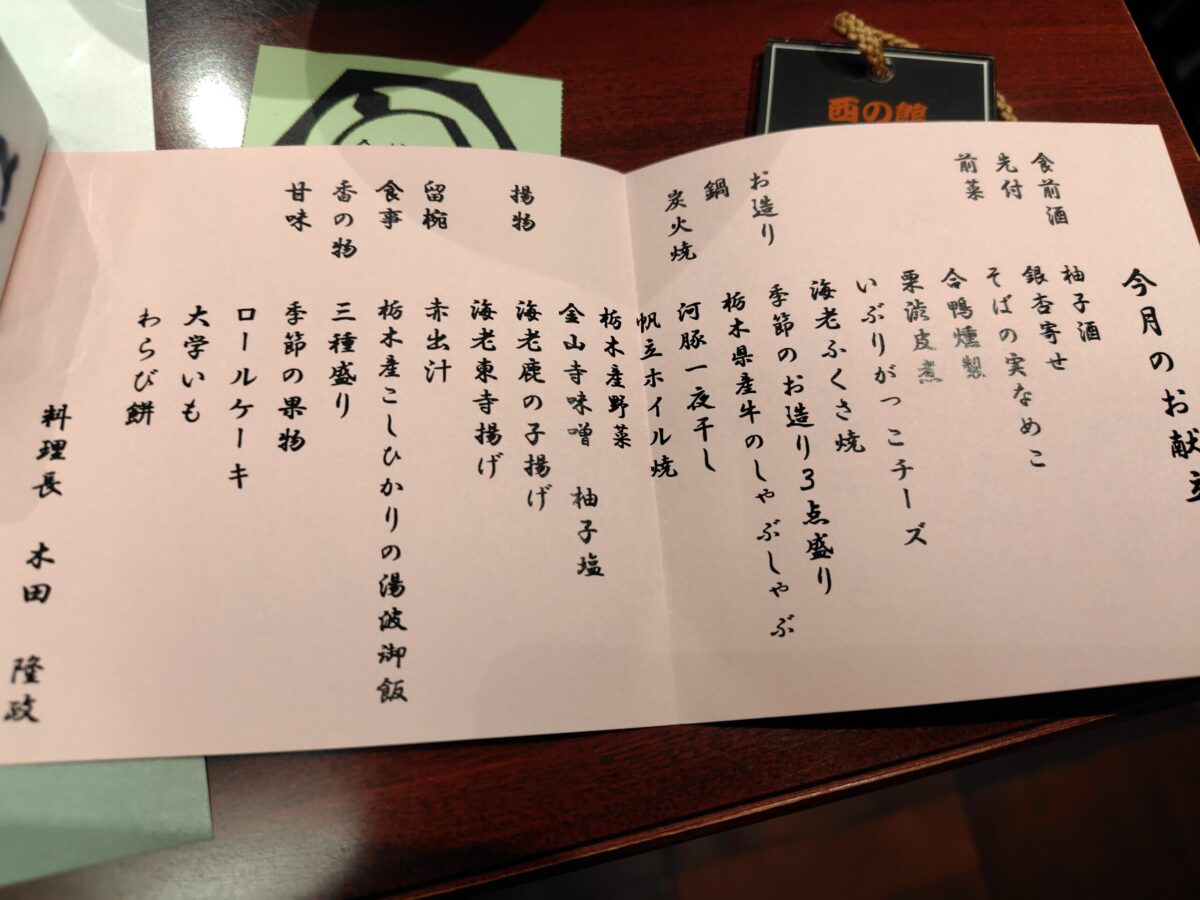 西の館
今月のお献立
食前酒
柚子酒
先付
銀杏寄せ
そばの実なめこ
前菜
合鴨燻製
栗渋皮煮
いぶりがっこチーズ
海老ふくさ焼
お造り
季節のお造り3点盛り
鍋
栃木県産牛のしゃぶしゃぶ
炭火焼
河豚一夜干し
帆立ホイル焼
栃木産野菜
金山寺味噌 柚子塩
揚物
海老鹿の子揚げ
海老東寺揚げ
留椀
赤出汁
食事
栃木産こしひかりの湯波御飯
香の物
三種盛り
甘味
季節の果物
ロールケーキ
大学いも
わらび餅
料理長 木田 隆政